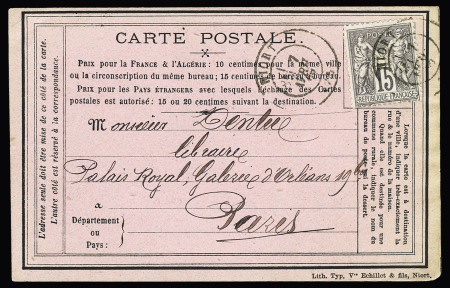 CARTE POSTALE.
Prix pour la France & l'Algérie: 10 centimes pour la même ville
ou la circonscription du même bureau; 15 centimes de bureau à bureau.
Prix pour les Pays étrangers avec lesquels l'échange des Cartes
postales est autorisé: 15 ou 20 centimes suivant la destination.
Monsieur Dentu
libraire
Palais Royal, Galerie d'Orléans 19
à Paris
Département
ou
Pays:
L'adresse seule doit être mise de ce côté de la carte.
L'autre côté est réservé à la correspondance.
Lorsque la carte est à destination
d'une ville, indiquer très-exactement la
rue & le numéro de la maison.
Quand elle est destinée pour une
commune rurale, indiquer le nom du
bureau de poste qui la dessert.
NIORT
POSTES
15
REPUBLIQUE FRANÇAISE
NIORT
Lith. Typ, Vve Echillet & fils, Niort.